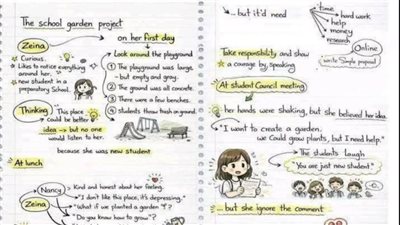 The school garden project
Zeina
on her first day
Curious.
Likes to notice everything
around her.
new student in a
preparatory School.
Look around the playground
① The playground was large.
- but empty and gray.
② The ground was all concrete.
③ There were a few benches.
④ students throw trash on ground.
Thinking
This place
could be better
idea → but no one
would listen to her.
because she was new student.
At lunch
Nancy
Zeina
Kind and honest about her feeling.
"I don't like this place, it's depressing."
"What if we planted a garden?"
"Do you know how to grow"?
... but it'd need
time
hard work
help
money
research
Online
Write Simple proposal
Take responsibility and show
a courage by speaking
At student Council meeting
her hands were shaking, but She believed her idea.
"I want to create a garden.
we Could grow plants, but I need help."
The students laugh
"You are just new student."
... but she ignore the comment